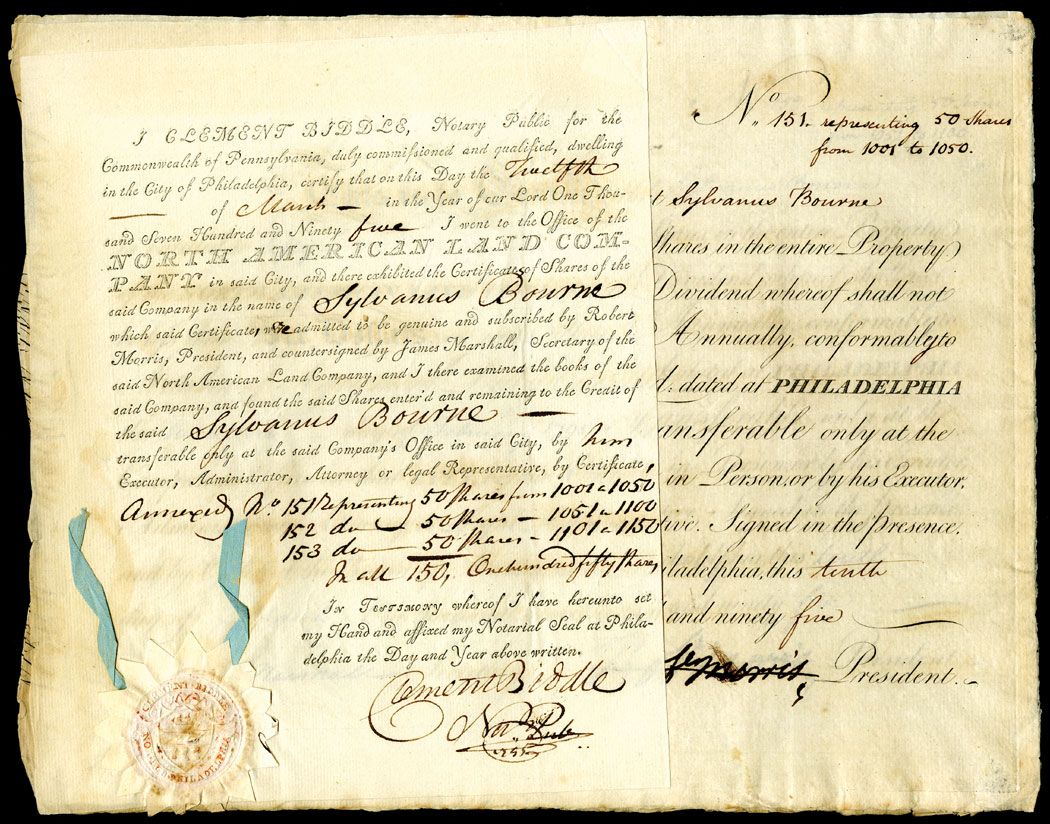 I CLEMENT BIDDLE, Notary Public for the
Commonwealth of Pennsylvania, duly commissioned and qualified, dwelling
in the City of Philadelphia, certify that on this Day the Twelfth
— of March — in the Year of our Lord One Thou-
sand Seven Hundred and Ninety five I went to the Office of the
NORTH AMERICAN LAND COM-
PANY in said City, and there exhibited the Certificates of Shares of the
said Company in the name of Sylvanus Bourne
which said Certificates, were admitted to be genuine and subscribed by Robert
Morris, President, and countersigned by James Marshall, Secretary of the
said North American Land Company, and I there examined the books of the
said Company, and found the said Shares enter'd and remaining to the Credit of
the said Sylvanus Bourne —
transferable only at the said Company's Office in said City, by him
Executor, Administrator, Attorney or legal Representative, by Certificate,
Annexed No. 151 Representing 50 Shares from 1001 a 1050
152 do — 50 Shares — 1051 a 1100
153 do — 50 Shares — 1101 a 1150
In all 150, One hundred fifty Shares,
IN TESTIMONY whereof I have hereunto set
my Hand and affixed my Notarial Seal at Phila-
delphia the Day and Year above written.
Clement Biddle
Not. Pub.
1795
CLEMENT BIDDLE
PHILADELPHIA
No. 151. representing 50 Shares
from 1001 to 1050.
t Sylvanus Bourne
Shares in the entire Property
Dividend whereof shall not
Annually, conformably to
d: dated at PHILADELPHIA
ansferable only at the
in Person, or by his Executor,
tive. Signed in the presence
iladelphia, this tenth
and ninety five
Morris President.